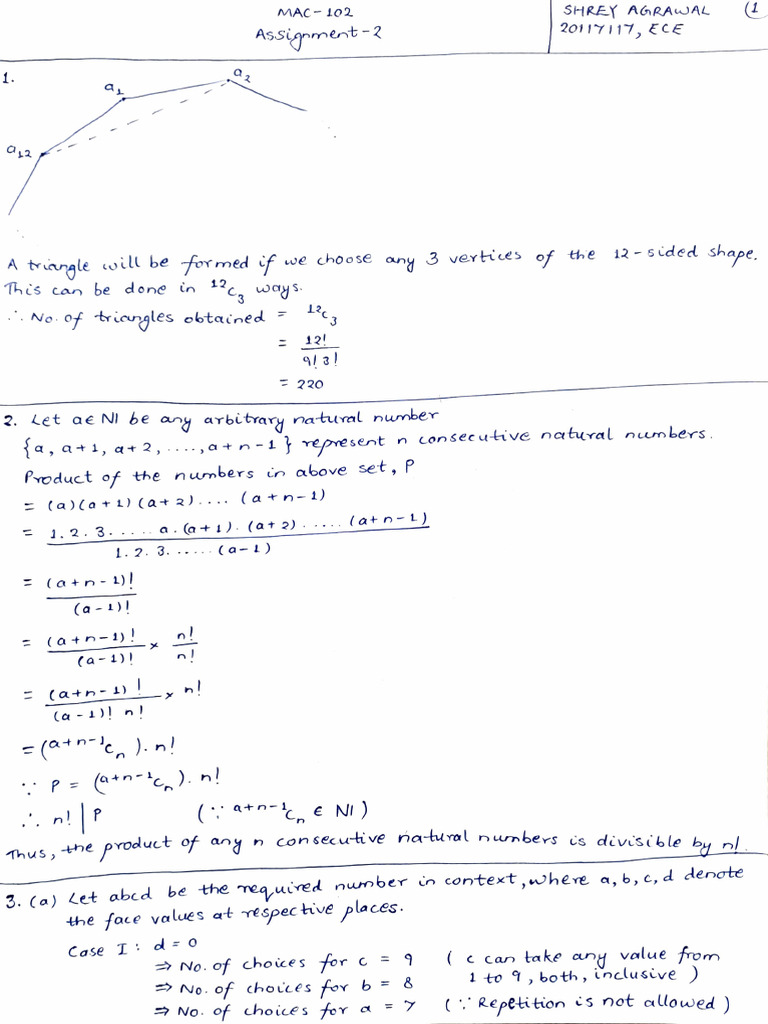 MAC-102
Assignment-2
SHREY AGRAWAL
20117117, ECE
(1
1.
a1
a2
a12
A triangle will be formed if we choose any 3 vertices of the 12-sided shape.
This can be done in ¹²C₃ ways.
∴ No. of triangles obtained = ¹²C₃
= 12!
9! 3!
= 220
2. Let a ∈ N be any arbitrary natural number
{a, a+1, a+2, ...., a+n-1} represent n consecutive natural numbers.
Product of the numbers in above set, P
= (a)(a+1)(a+2).... (a+n-1)
= 1.2.3..... a.(a+1).(a+2)..... (a+n-1)
1.2.3......(a-1)
= (a+n-1)!
(a-1)!
= (a+n-1)! × n!
(a-1)! n!
= (a+n-1)! × n!
(a-1)! n!
= (ᵃ⁺ⁿ⁻¹Cₙ). n!
∵ P = (ᵃ⁺ⁿ⁻¹Cₙ). n!
∴ n! | P (∵ ᵃ⁺ⁿ⁻¹Cₙ ∈ N)
Thus, the product of any n consecutive natural numbers is divisible by n!.
3. (a) Let abcd be the required number in context, where a, b, c, d denote
the face values at respective places.
Case I: d = 0
⇒ No. of choices for c = 9 (c can take any value from
1 to 9, both, inclusive)
⇒ No. of choices for b = 8
⇒ No. of choices for a = 7 (∵ Repetition is not allowed)